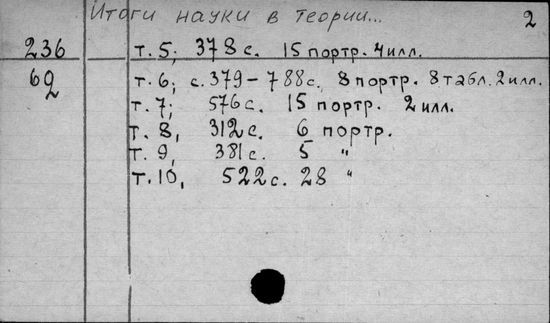 Итоги науки в теории... 2
236 т. 5; 378 с. 15 портр. 4 илл.
62 т. 6; с. 379-788 с. 8 портр. 8 табл. 2 илл.
т. 7; 576 с. 15 портр. 2 илл.
т. 8, 312 с. 6 портр.
т. 9, 381 с. 5 "
т. 10, 522 с. 28 "